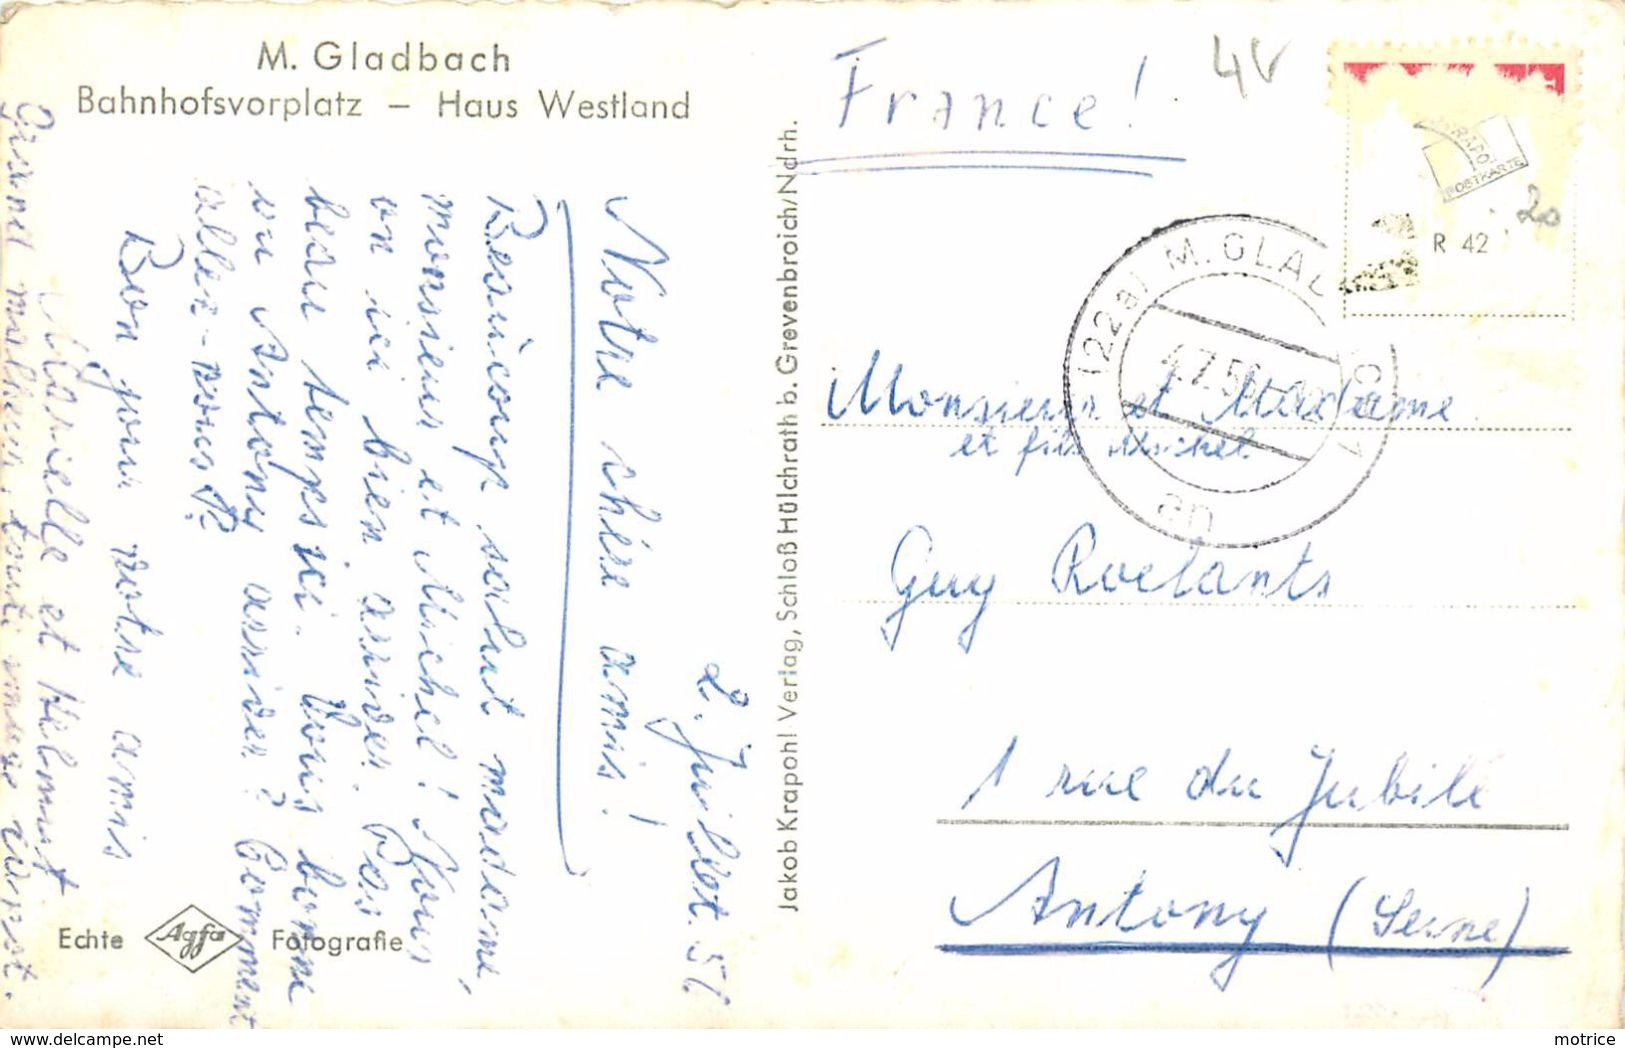 M. Gladbach
Bahnhofsvorplatz – Haus Westland
2. Juillet. 56
Notre chère amis!
Beaucoup salut madame,
monsieur et Michel! Nous
on ici bien arrivée. Pas
beau temps ici. Vous bonne
en Antony arrivée? Comment
allez-vous?
Bon jour votre amis
Marielle et Helmut
Echte Agfa Fotografie
Jakob Krapohl Verlag, Schloß Hülchrath b. Grevenbroich/Ndrh.
France!
4V
FERRAPO
POSTKARTE
20
R 42
(22a) M. GLADBACH
4.7.56
an
Monsieur et Madame
et fils Michel
Guy Roelants
1 rue du Jubilé
Antony (Seine)
motrice